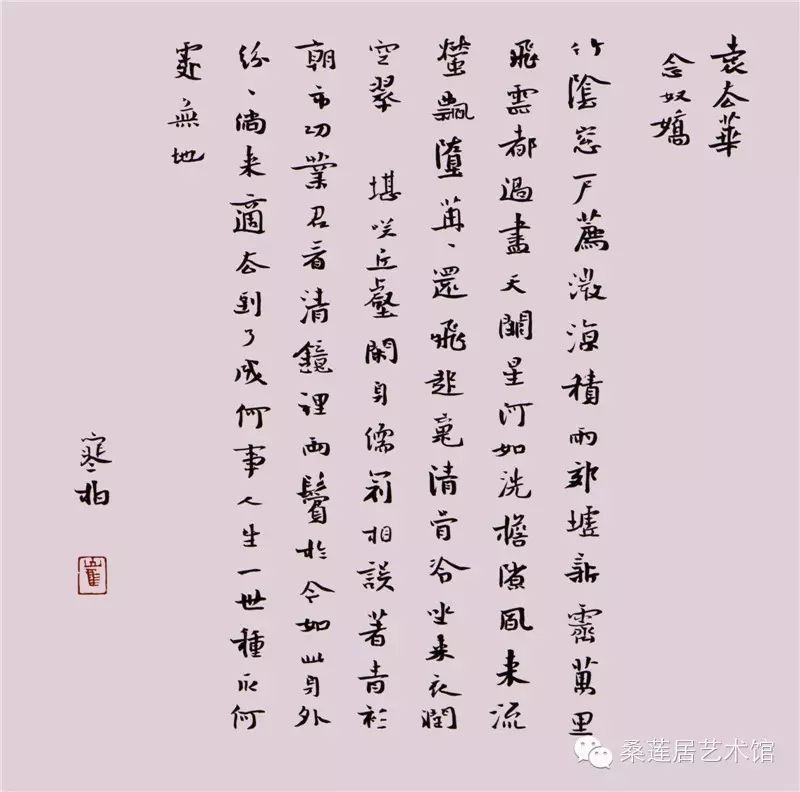 袁去華
念奴嬌
竹陰窓户薦微涼積雨郊墟新霽萬里
飛雲都過盡天闊星河如洗檐隙風来流
螢飄墮苒、還飛起清骨冷坐来衣潤
空翠 堪咲丘壑閑身儒冠相誤著青衫
朝市功業君看清鏡裡兩鬢於今如此身外
紛、倘来適去到了成何事人生一世種瓜何
處無地
寒柏
崔
桑莲居艺术馆